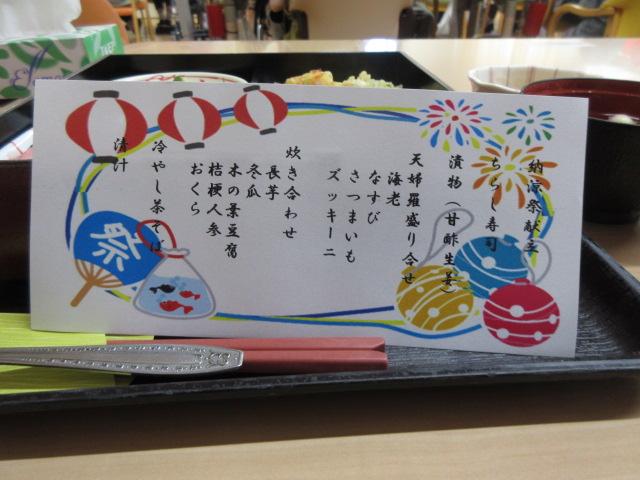 納涼祭献立
ちらし寿司
漬物（甘酢生姜）
天婦羅盛り合せ
海老
なすび
さつまいも
ズッキーニ
炊き合わせ
長芋
冬瓜
木の葉豆腐
桔梗人参
おくら
冷やし茶そば
清汁
祭